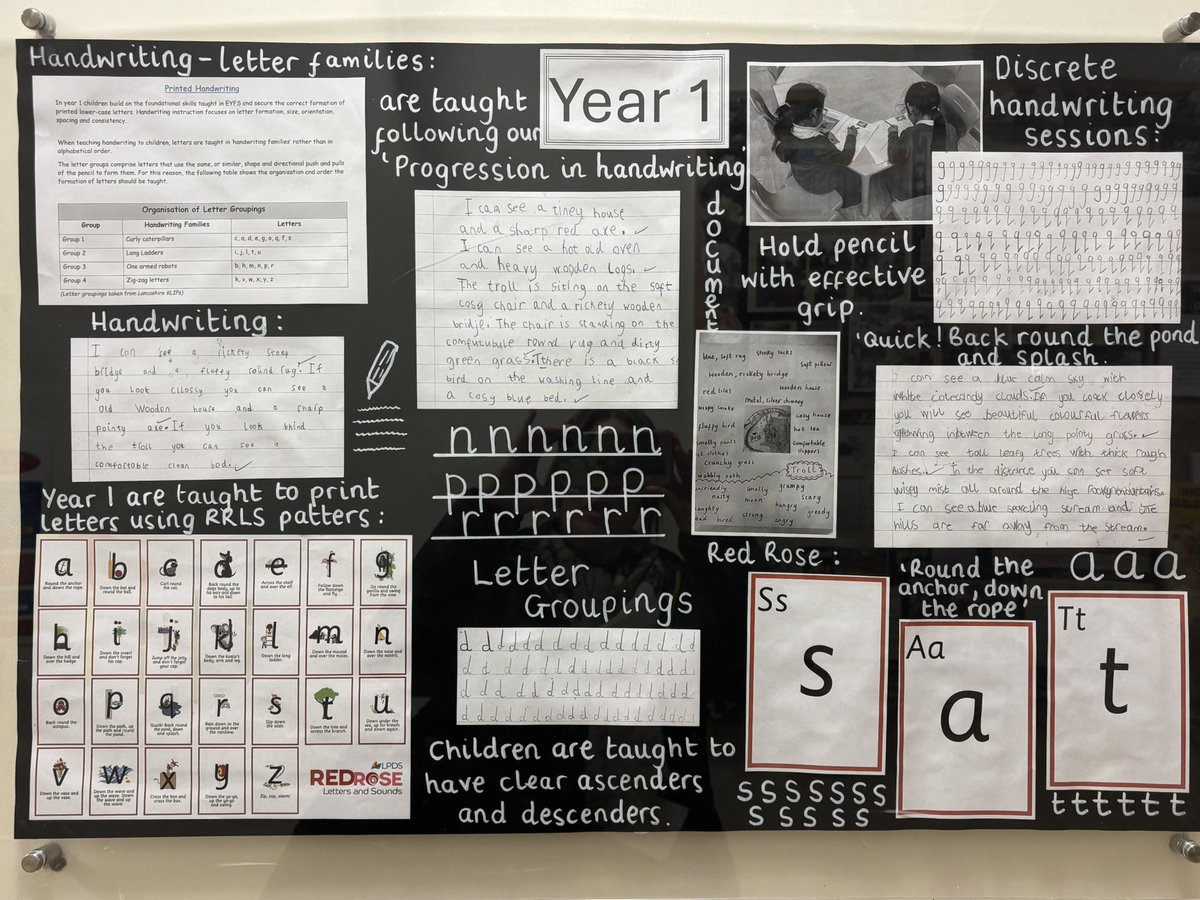 Handwriting – letter families:
Printed Handwriting
In year 1 children build on the foundational skills taught in EYFS and secure the correct formation of
printed lower-case letters. Handwriting instruction focuses on letter formation, size, orientation,
spacing and consistency.
When teaching handwriting to children, letters are taught in 'handwriting families' rather than in
alphabetical order.
The letter groups comprise letters that use the same, or similar, shape and directional push and pulls
of the pencil to form them. For this reason, the following table shows the organisation and order the
formation of letters should be taught.
Organisation of Letter Groupings
Group Handwriting Families Letters
Group 1 Curly caterpillars c, a, d, e, g, o, q, f, s
Group 2 Long Ladders i, j, l, t, u
Group 3 One armed robots b, h, m, n, p, r
Group 4 Zig-zag letters k, v, w, x, y, z
(Letter groupings taken from Lancashire KLIPs)
are taught
following our
'Progression in handwriting'
document
Year 1
Discrete
handwriting
sessions:
Hold pencil
with effective
grip.
'Quick! Back round the pond
and splash.
Handwriting:
I can see a rickety
bridge and a fluffy round rug. If
you look cllosly you can see a
old wooden house and a sharp
pointy axe. If you look bhind
the troll you can see a
comfortable clean bed.
I can see a tiney house
and a sharp red axe.
I can see a hot old oven
and heavy wooden logs.
The troll is siting on the soft
cosy chair and a rickety wooden
bridje. The chair is standing on the
comfutubule round rug and dirty
green grass. There is a black
bird on the washing line and
a cosy blue bed.
blue, soft rug stinky socks
soft pillow
wooden, rickety bridge
wooden house
red tiles
metal, silver chimney
wispy smoke
cosy house
fluffy bird
hot sea
smelly pants
comfortable
slippers
clothes
crunchy grass
wobbly path
Troll
unfriendly smelly grumpy
nasty mean scary
naughty hungry greedy
bad strong angry
I can see a blue calm sky with
white clouds. If you look closely
you will see beautiful colourful flowers
inbtween the long pointy grass.
I can see tall leafy trees with thick rough
bushes. In the distance you can see soft
wispy mist all around the
I can see a blue sparcling stream and
hills are far away from the stream.
Year 1 are taught to print
letters using RRLS patters:
a b c d e f g
Round the anchor and down the rope.
Down the bat and round the ball.
Curl round the cat.
Back round the dogs body, up to his ears and down to his tail.
Across the shelf and over the elf.
Follow down the flamingo and fly.
Go round the gorilla and swing from the vine.
h i j k l m n
Down the hill and over the hedge.
Down the insect and don't forget his cap.
Jump off the jetty and don't forget your cap.
Down the koala's body, arm and leg.
Down the long ladder.
Down the mound and over the moles.
Down the nose and over the nostril.
o p q r s t u
Back round the octopus.
Down the path, up the path and round the pond.
Quick! Back round the pond, down and splash.
Rain down to the ground and over the rainbow.
Slip down the slide.
Down the tree and across the branch.
Down under the sea, up for breath and down again.
v w x y z
Down the vase and up the vase.
Down the wave and up the wave. Down the wave and up the wave.
Cross the box and cross the box.
Down the yo-yo, up the yo-yo and swing.
Zip, zap, zoom!
LPDS
REDROSE
Letters and Sounds
nnnnnnn
pppppp
rrrrrrr
Letter
Groupings
Children are taught to
have clear ascenders
and descenders.
Red Rose:
Ss
s
sssssss
sssss
'Round the
anchor, down
the rope'
Aa
a
aaa
Tt
t
tttttt